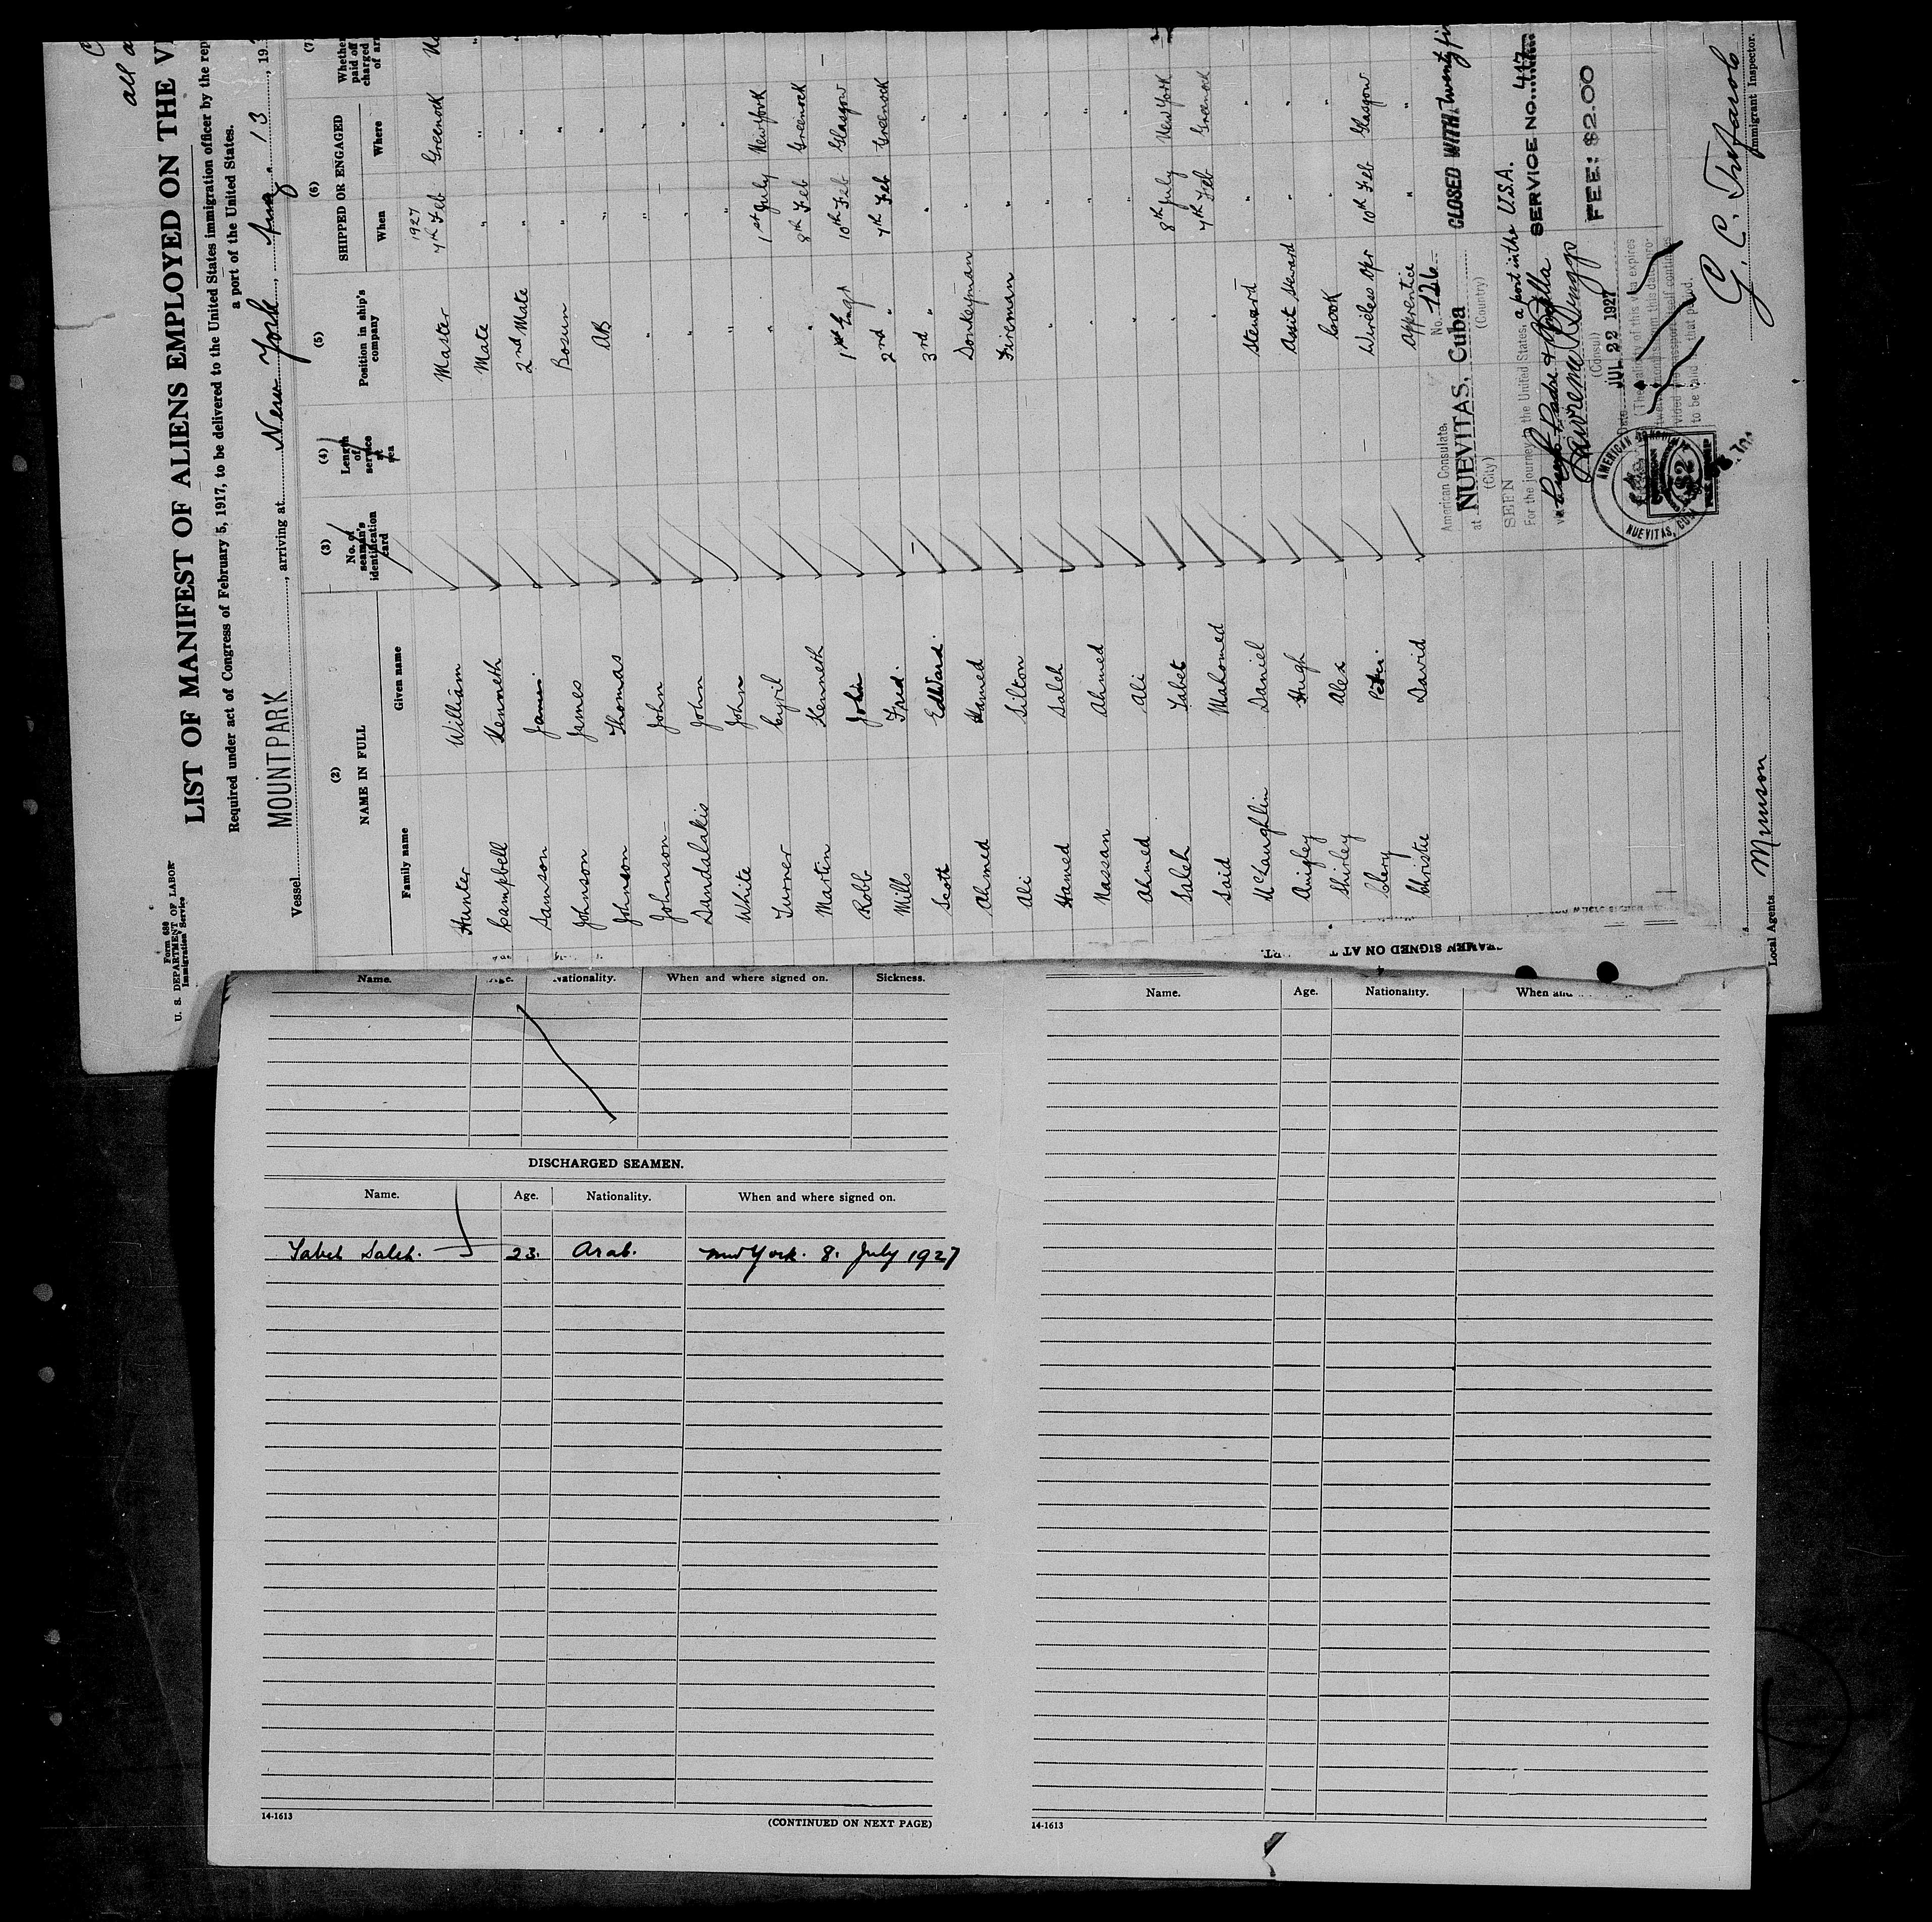 Form 686
U. S. DEPARTMENT OF LABOR
Immigration Service
all a
LIST OF MANIFEST OF ALIENS EMPLOYED ON THE V
Required under act of Congress of February 5, 1917, to be delivered to the United States immigration officer by the rep
a port of the United States.
Vessel MOUNTPARK, arriving at New York, Aug. 13, 19
(2) (3) (4) (5) (6) (7)
NAME IN FULL No. of seaman's identification card Length of service at sea Position in ship's company SHIPPED OR ENGAGED Whether paid off
Family name Given name When Where
1927
Hunter William Master 7th Feb Greenock
Campbell Kenneth Mate " "
Samson James 2nd Mate " "
Johnson James Bosun " "
Johnson Thomas AB " "
Johnson John " " "
Dandalakis John " " "
White John " " "
Turner Cyril " 1st July New York
Martin Kenneth " 8th Feb Greenock
Robb John 1st Engr 10th Feb Glasgow
Mills Fred. 2nd " 7th Feb Greenock
Scott Edward. 3rd " " "
Ahmed Hamed Donkeyman " "
Ali Silton Fireman " "
Hamed Saleh " " "
Hassan Ahmed " " "
Ahmed Ali " " "
Saleh Sabet " 8th July New York
Said Mahomed " 7th Feb Greenock
McLaughlin Daniel Steward " "
Quigley Hugh Assit Steward " "
Shirley Alex Cook " "
Clary Peter Wireless Opr 10th Feb Glasgow
Christie David Apprentice " "
No. 126
American Consulate,
at NUEVITAS, Cuba
(City) (Country)
CLOSED WITH Twenty fi
SEEN
For the journey to the United States, a port in the U.S.A.
SERVICE NO. 417
(Consul)
FEE: $2.00
Date JUL 22 1927
(The validity of this visa expires
AMERICAN CONSULATE
NUEVITAS, CUBA
$2
G. C.
Immigrant Inspector.
Local Agents Munson
SEAMEN SIGNED ON AT
Name. Age. Nationality. When and where signed on. Sickness.
DISCHARGED SEAMEN.
Name. Age. Nationality. When and where signed on.
Sabet Saleh. 23. Arab. New York. 8. July 1927
14-1613
(CONTINUED ON NEXT PAGE)
Name. Age. Nationality. When and
14-1613